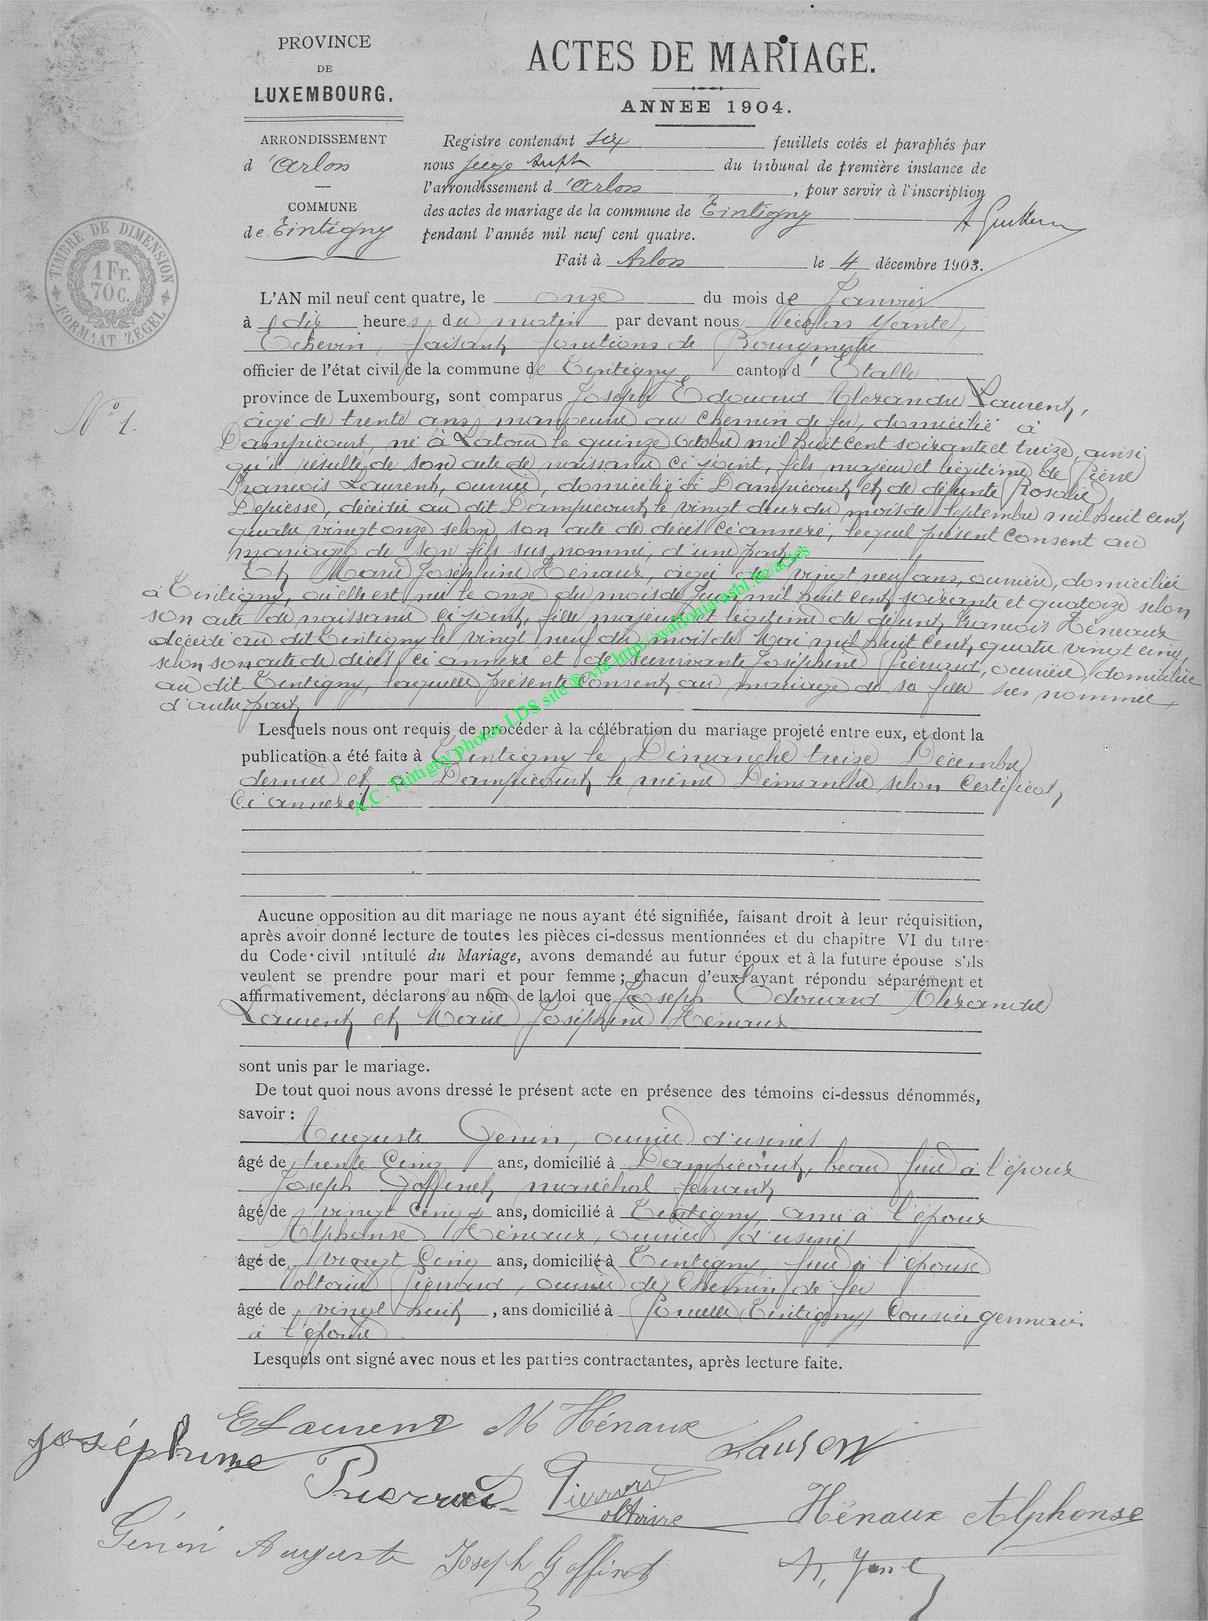 PROVINCE
DE
LUXEMBOURG.
ARRONDISSEMENT
d'Arlon
COMMUNE
de Tintigny
TIMBRE DE DIMENSION
1 Fr.
70 C.
FORMAAT ZEGEL
ACTES DE MARIAGE.
ANNEE 1904.
Registre contenant six feuillets cotés et paraphés par
nous Juge du tribunal de première instance de
l'arrondissement d'Arlon, pour servir à l'inscription
des actes de mariage de la commune de Tintigny
pendant l'année mil neuf cent quatre.
Fait à Arlon le 4 décembre 1903.
N° 1.
L'AN mil neuf cent quatre, le onze du mois de Janvier
à dix heures du matin par devant nous Nicolas
Echevin, faisant fonctions de Bourgmestre
officier de l'état civil de la commune de Tintigny, canton d'Etalle
province de Luxembourg, sont comparus Joseph Edouard Alexandre Laurent,
âgé de trente ans, manœuvre au chemin de fer, domicilié à
Dampicourt, né à Latour le quinze Octobre mil huit cent soixante et treize, ainsi
qu'il résulte de son acte de naissance ci joint, fils majeur et légitime de
François Laurent, ouvrier, domicilié à Dampicourt et de défunte Rosalie
décédée au dit Dampicourt le vingt deux du mois de Septembre mil huit cent
quatre vingt onze selon son acte de décès ci annexé, lequel présent consent au
mariage de son fils sus nommé, d'une part
Et Marie Joséphine Hénaux, âgée de vingt neuf ans, ouvrière, domiciliée
à Tintigny, où elle est née le onze du mois de Juin mil huit cent soixante et quatorze selon
son acte de naissance ci joint, fille majeure et légitime de défunt François Hénaux
décédé au dit Tintigny le vingt neuf du mois de Mai mil huit cent quatre vingt cinq
selon son acte de décès ci annexé et de survivante Joséphine Piérard, ouvrière, domiciliée
au dit Tintigny, laquelle présente consent au mariage de sa fille sus nommée
d'autre part
Lesquels nous ont requis de procéder à la célébration du mariage projeté entre eux, et dont la
publication a été faite à Tintigny le Dimanche treize Décembre
dernier et à Dampicourt le même Dimanche selon certificat
ci annexé
A.C. Tintigny photos LDS site & via http://wallonia-asbl.be/actes
Aucune opposition au dit mariage ne nous ayant été signifiée, faisant droit à leur réquisition,
après avoir donné lecture de toutes les pièces ci-dessus mentionnées et du chapitre VI du titre
du Code civil intitulé du Mariage, avons demandé au futur époux et à la future épouse s'ils
veulent se prendre pour mari et pour femme ; chacun d'eux ayant répondu séparément et
affirmativement, déclarons au nom de la loi que Joseph Edouard Alexandre
Laurent et Marie Joséphine Hénaux
sont unis par le mariage.
De tout quoi nous avons dressé le présent acte en présence des témoins ci-dessus dénommés,
savoir :
Auguste Génin, ouvrier d'usines
âgé de trente cinq ans, domicilié à Dampicourt, beau frère à l'époux
Joseph Goffinet, maréchal ferrant
âgé de vingt cinq ans, domicilié à Tintigny, ami à l'époux
Alphonse Hénaux, ouvrier d'usines
âgé de vingt cinq ans, domicilié à Tintigny, frère à l'épouse
Voltaire Piérard, ouvrier de chemin de fer
âgé de vingt huit, ans domicilié à Tintigny Cousin germain
à l'épouse.
Lesquels ont signé avec nous et les parties contractantes, après lecture faite.
E Laurent M Hénaux
Laurent
Joséphine
Voltaire
Hénaux Alphonse
Génin Auguste Joseph Goffinet